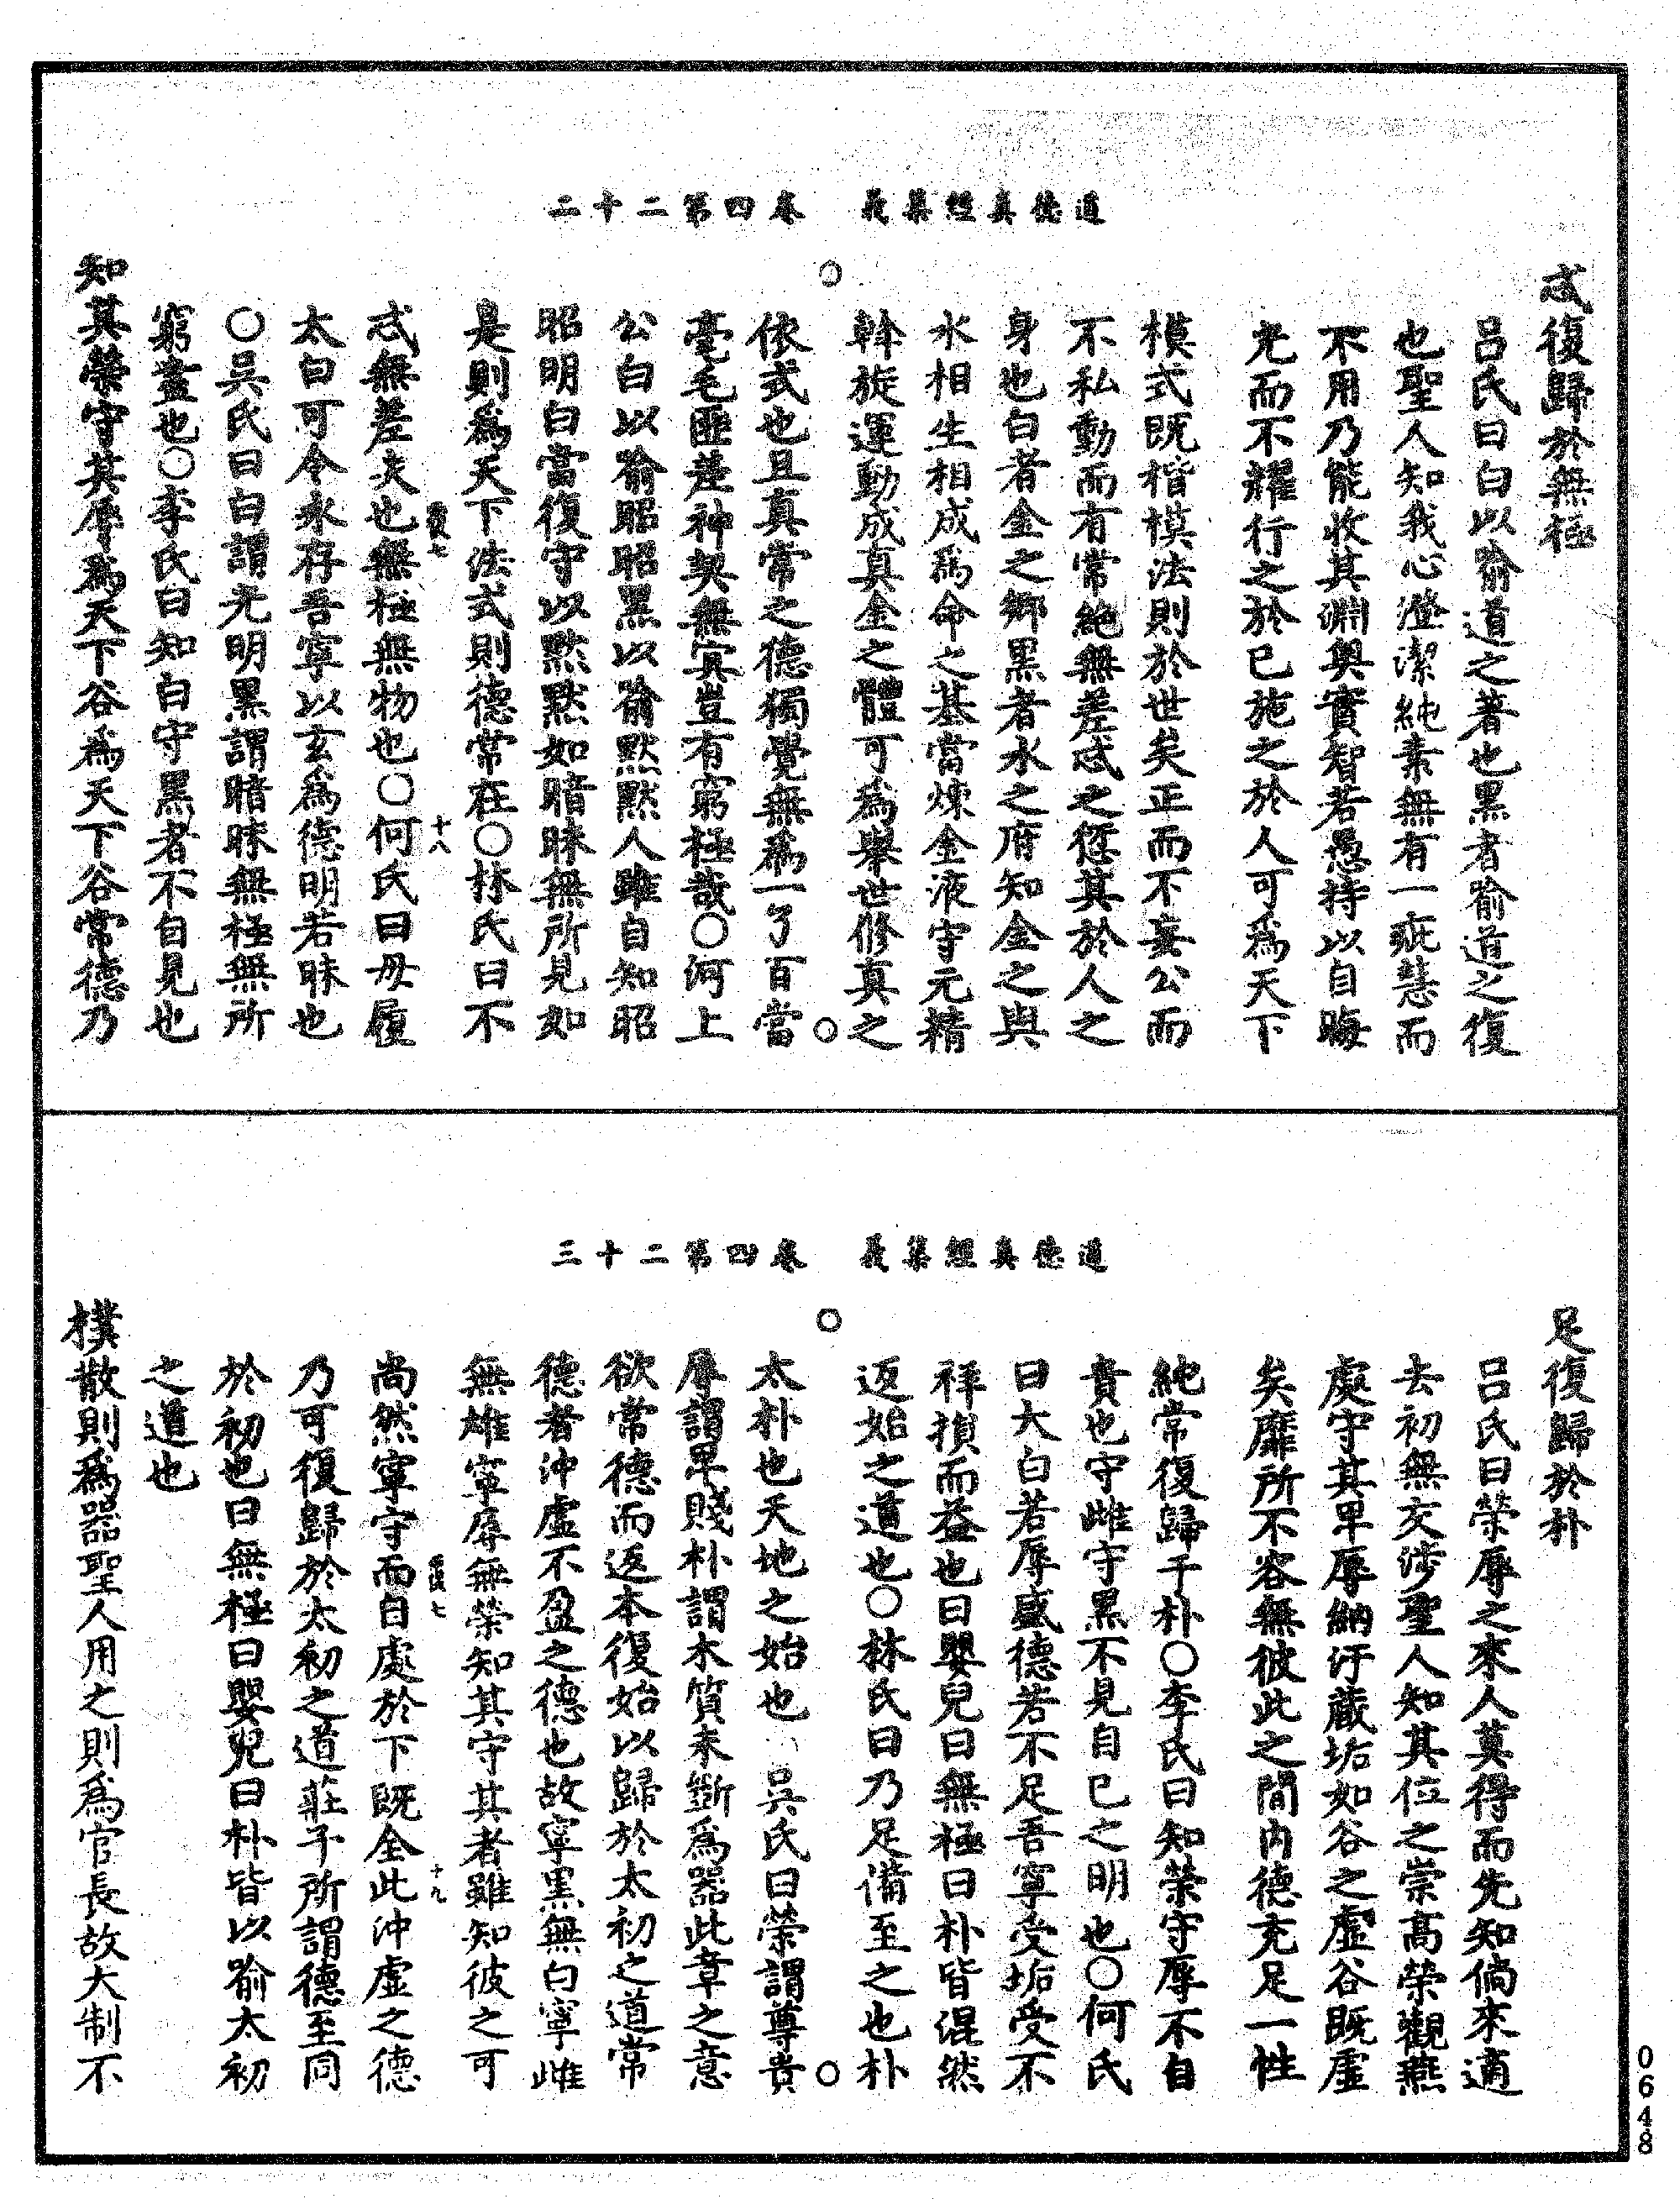 道德真經集義　卷四第二十二
忒復歸於無極
呂氏曰白以喻道之著也黑者喻道之復
也聖人知我心澄潔純素無有一疵慧而
不用乃能收其淵奧實智若愚持以自晦
光而不耀行之於已施之於人可爲天下
模式既楷模法則於世矣正而不妄公而
不私動而有常絶無差忒之愆其於人之
身也白者金之鄉黑者水之府知金之與
水相生相成爲命之基當煉金液守元精
斡旋運動成真金之體可爲舉世修真之
○　○
依式也且真常之德獨覺無爲一了百當
毫毛匪差神契無寘豈有窮極哉○河上
公白以喻昭昭黑以喻默默人雖自知昭
昭明白當復守以默默如暗昧無所見如
是則爲天下法式則德常在○林氏曰不
十八
忒無差失也無極無物也○何氏曰毋履
太白可令永存吾寧以玄爲德明若昧也
○吳氏曰白謂光明黑謂暗昧無極無所
窮盡也○李氏曰知白守黑者不自見也
知其榮守其辱爲天下谷爲天下谷常德乃
道德真經集義　卷四第二十三
足復歸於朴
呂氏曰榮辱之來人莫得而先知倘來適
去初無交涉聖人知其位之崇高榮觀燕
處守其卑辱納汙藏垢如谷之虛谷既虛
矣靡所不容無彼此之間内德充足一性
純常復歸于朴○李氏曰知榮守辱不自
貴也守雌守黑不見自已之明也○何氏
曰大白若辱盛德若不足吾寧受垢受不
祥損而益也曰嬰兒曰無極曰朴皆混然
返始之道也○林氏曰乃足備至之也朴
○　○
太朴也天地之始也　吳氏曰榮謂尊貴
辱謂卑賤朴謂木質未斲爲器此章之意
欲常德而返本復始以歸於太初之道常
德者沖虛不盈之德也故寧黑無白寧雌
無雄寧辱無榮知其守其者雖知彼之可
十九
尚然寧守而自處於下既全此沖虛之德
乃可復歸於太初之道莊子所謂德至同
於初也曰無極曰嬰兒曰朴皆以喻太初
之道也
樸散則爲器聖人用之則爲官長故大制不
0648